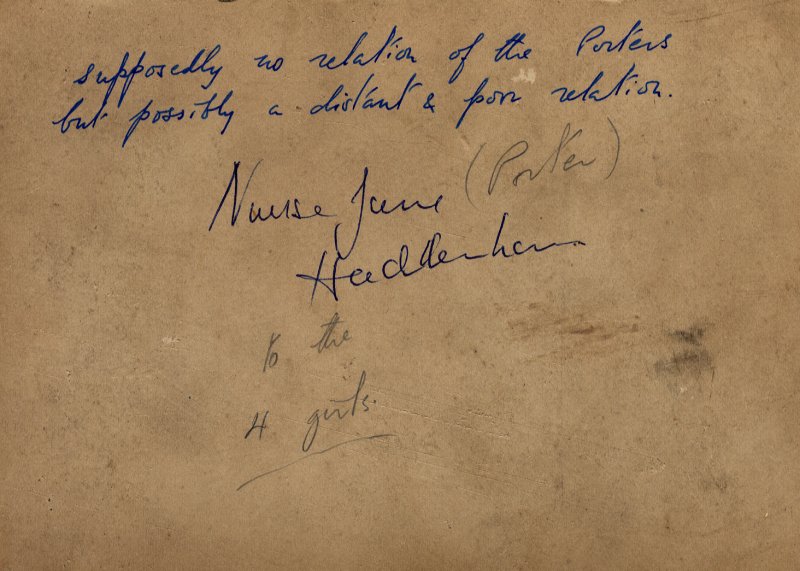 supposedly no relation of the Porters
but possibly a distant & poor relation.
Nurse Jane (Porter)
Haddenham
to the
4 girls.